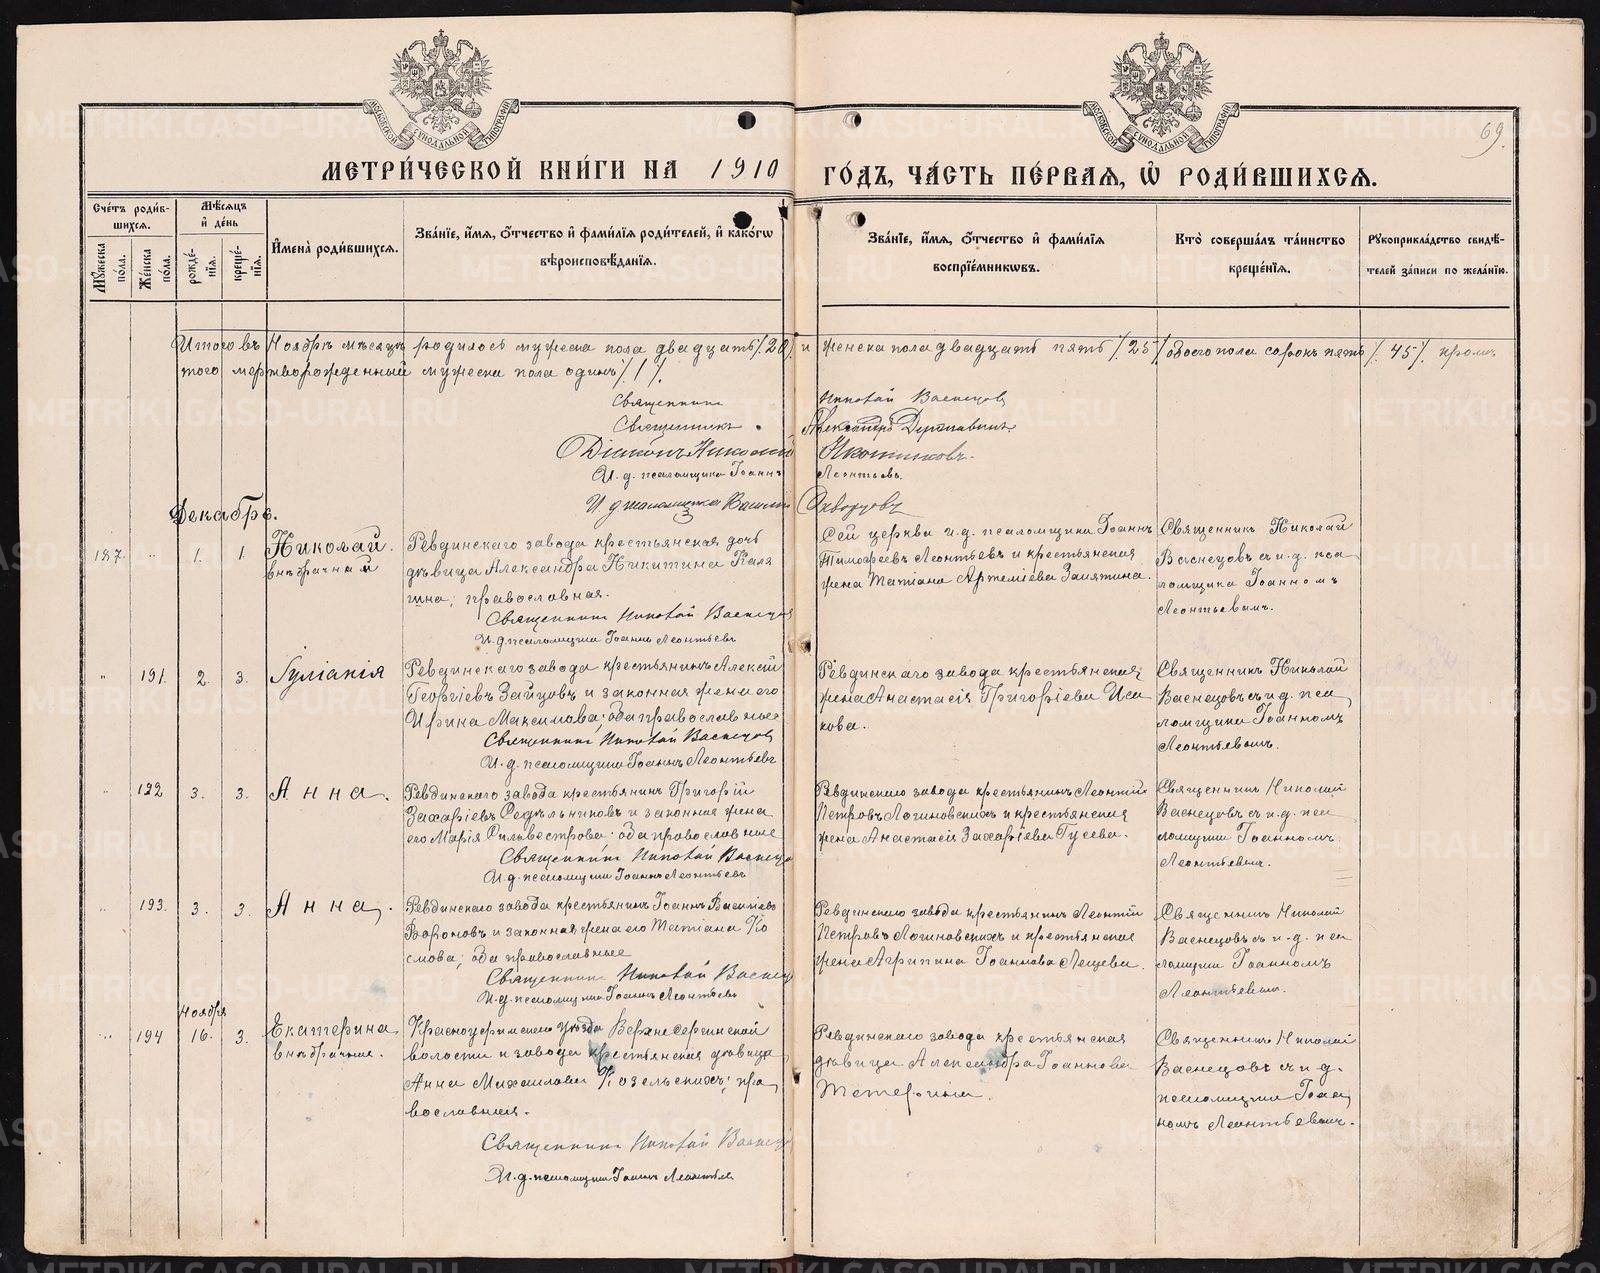 69.
МЕТРИ́ЧЕСКОЙ КНИ́ГИ НА 1910 ГО́ДЪ, ЧА́СТЬ ПЕ́РВАЯ, Ѡ҆ РОДИ́ВШИХСЯ.
Сче́тъ роди́вшихся.
Мꙋ́жеска по́ла.
Же́нска по́ла.
Мѣ́сяцъ и҆ де́нь
рожде́нїя.
креще́нїя.
И҆мена̀ роди́вшихся.
Зва́нїе, и҆́мя, ѻ҆́тчество и҆ фами́лїя роди́телей, и҆ како́гѡ
вѣроисповѣ́данїя.
Зва́нїе, и҆́мя, ѻ҆́тчество и҆ фами́лїя
воспрїе́мникѡвъ.
Кто̀ соверша́лъ та́инство
креще́нїя.
Рꙋкоприкла́дство свидѣ́телей за́писи по жела́нїю.
Итого въ Ноябрѣ мѣсяцѣ родилось мужеска пола двадцать /20/ и женска пола двадцать пять /25/ обоего пола сорокъ пять /45/ кромѣ
того мертворожденный мужеска пола одинъ /1/.
Священникъ Николай Васнецовъ
Священникъ Александръ Державинъ
Діаконъ Николай
И. д. псаломщика Іоаннъ Леонтьевъ
И д псаломщика Василій Скворцовъ
Декабрь.
187. " 1. 1. Николай. внѣбрачный
Ревдинскаго завода крестьянская дочь
дѣвица Александра Никитина Каля
гина; православная.
Священникъ Николай Васнецовъ
И. д. псаломщика Іоаннъ Леонтьевъ
Сей церкви и.д. псаломщика Іоаннъ
Тимофеевъ Леонтьевъ и крестьянская
жена Татіана Артеміева Замятина.
Священникъ Николай
Васнецовъ съ и.д. пса
ломщика Іоанномъ
Леонтьевымъ.
" 191. 2. 3. Іуліанія
Ревдинскаго завода крестьянинъ Алексій
Георгіевъ Зайцовъ и законная жена его
Ирина Максимова; оба православные
Священникъ Николай Васнецовъ
И. д. псаломщика Іоаннъ Леонтьевъ
Ревдинскаго завода крестьянская
жена Анастасія Григоріева Иса
кова.
Священникъ Николай
Васнецовъ съ и д. пса
ломщика Іоанномъ
Леонтьевымъ.
" 192 3. 3. Анна.
Ревдинскаго завода крестьянинъ Григорій
Захаріевъ Редѣльниковъ и законная жена
его Марія Сильвестрова; оба православные
Священникъ Николай Васнецо
И. д. псаломщика Іоаннъ Леонтьевъ
Ревдинскаго завода крестьянинъ Леонтій
Петровъ Логиновскихъ и крестьянская
жена Анастасія Захаріева Гусева.
Священникъ Николай
Васнецовъ съ и.д. пса
ломщика Іоанномъ
Леонтьевымъ.
" 193. 3. 3. Анна.
Ревдинскаго завода крестьянинъ Іоаннъ Василіевъ
Вороновъ и законная жена его Татіана Ко
смова; оба православные
Священникъ Николай Васнец
И. д. псаломщика Іоаннъ Леонтьевъ
Ревдинскаго завода крестьянинъ Леонтій
Петровъ Логиновскихъ и крестьянская
жена Агрипина Іоаннова Лещева.
Священникъ Николай
Васнецовъ съ и. д. пса
ломщика Іоанномъ
Леонтьевымъ.
Ноября
" 194 16. 3. Екатерина внѣбрачная.
Красноуфимскаго уѣзда Верхнесергинской
волости и завода крестьянская дѣвица
Анна Михаилова Козельскихъ; пра
вославная.
Священникъ Николай Васнецо
И. д. псаломщика Іоаннъ Леонтьевъ
Ревдинскаго завода крестьянская
дѣвица Александра Іоаннова
Священникъ Николай
Васнецовъ съ и д.
псаломщика Іоан
номъ Леонтьевымъ.
METRIKI.GASO-URAL.RU